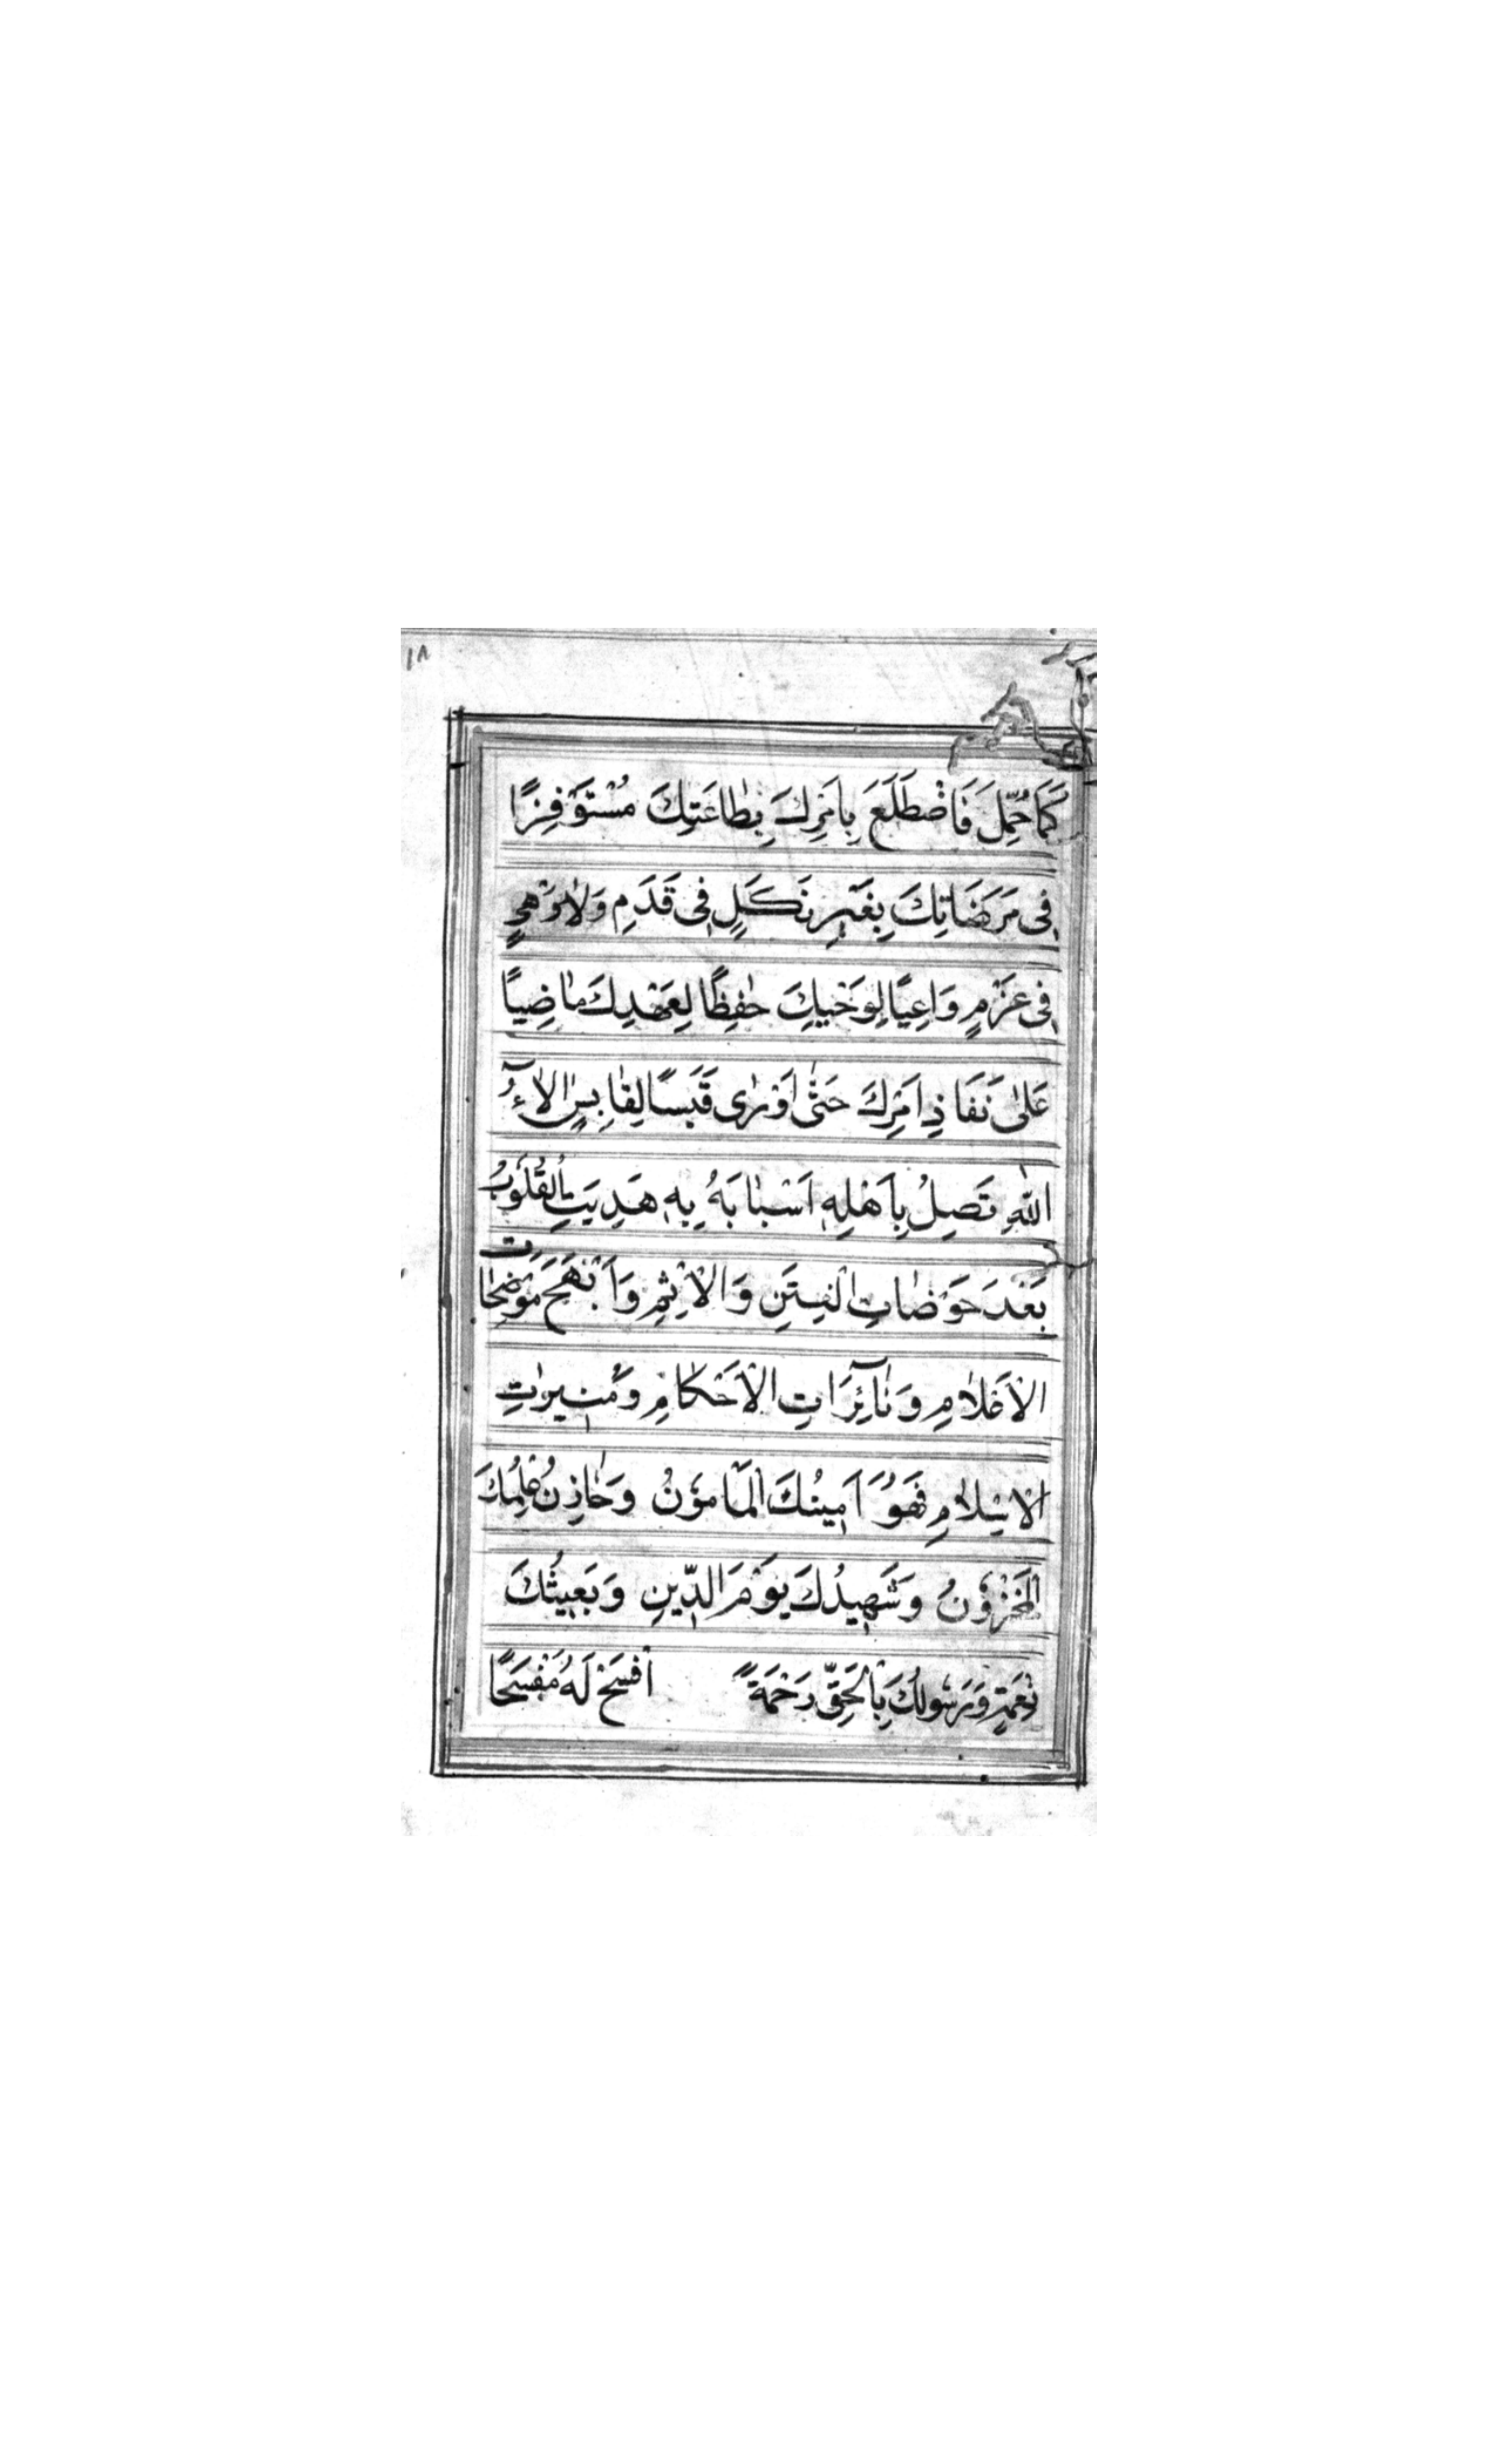 ١٨
كَمَا حُمِّلَ فَاضْطَلَعَ بِاَمْرِكَ بِطَاعَتِكَ مُسْتَوْفِزًا
فِى مَرَضَاتِكَ بِغَيْرِ نَكَلٍ فِى قَدَمٍ وَلَا وَهْىٍ
فِى عَزْمٍ وَاعِيًا لِوَحْيِكَ حٰفِظًا لِعَهْدِكَ مَاضِيًا
عَلٰى نَفَاذِ اَمْرِكَ حَتّٰى اَوْرٰى قَبَسًا لِقٰابِسٍ اٰلَاۤءُ
اللّٰهِ تَصِلُ بِاَهْلِهٖ اَسْبَابَهُ بِهٖ هَدِيَتِ الْقُلُوْبُ
بَعْدَ خَوْضَاتِ الْفِتَنِ وَالْاِثْمِ وَاَبْهَجَ مَوْضِحَاتِ
الْاَعْلَامِ وَنَاۤئِرَاتِ الْاَحْكَامِ وَمُنِيرٰتِ
الْاِسْلَامِ فَهُوَ اَمِينُكَ الْمَاْمُوْنُ وَخَازِنُ عِلْمِكَ
الْمَخْزُوْنُ وَشَهِيدُكَ يَوْمَ الدِّيْنِ وَبَعِيثُكَ
نِعْمَةٍ وَرَسُولُكَ بِالْحَقِّ رَحْمَةً افْسَحْ لَهُ مَفْسَحًا